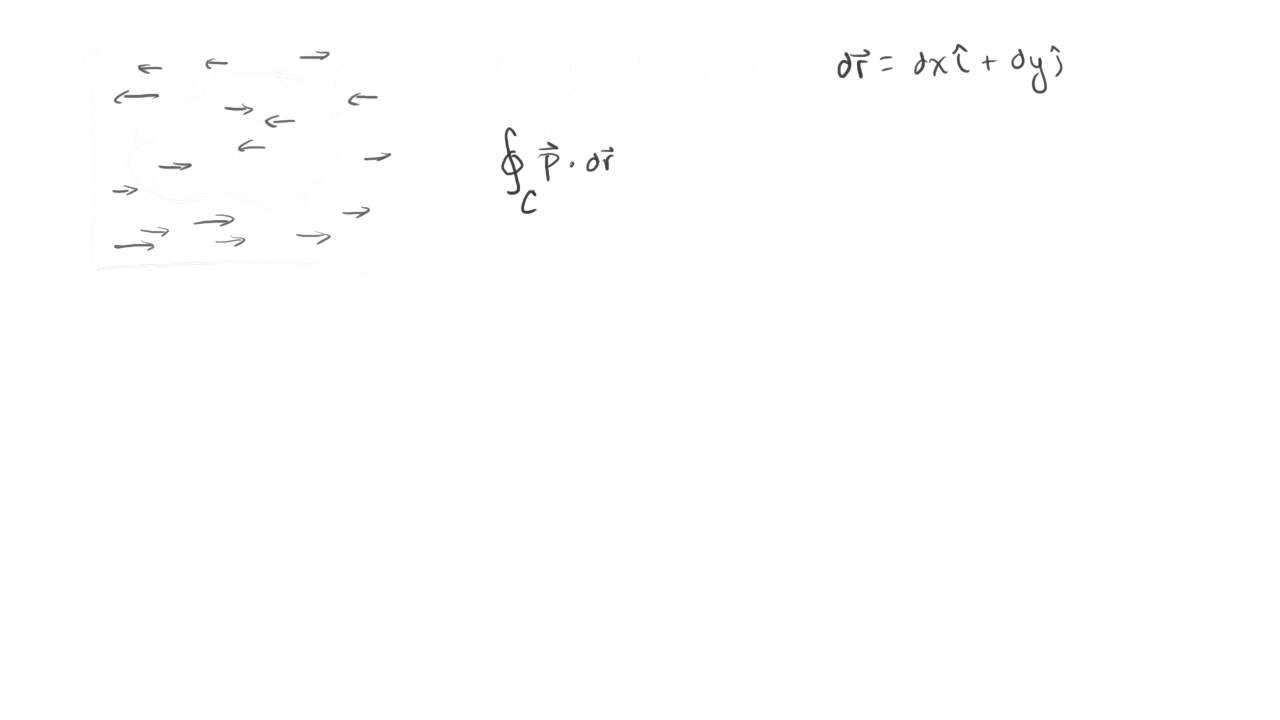 d\vec{r} = dx\hat{i} + dy\hat{j}
\oint_C \vec{P} \cdot d\vec{r}